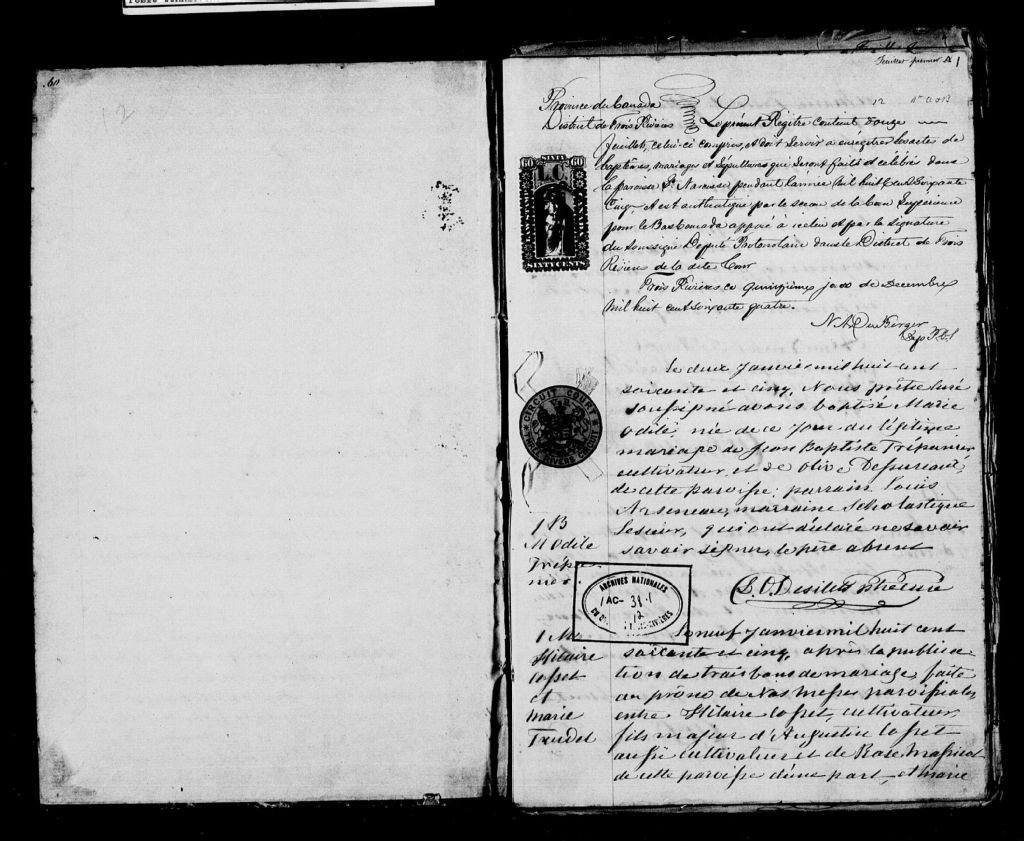 60
12
Feuillet premier
1
Province du Canada
District de Trois Rivières
Le présent Régitre contenant Douze
feuillets, celui-ci compris, et doit servir à enrégitrer les actes de
baptêmes, mariages et sépultures qui seront faits et célébrés dans
la paroisse St Narcisse pendant l'année Mil huit Cent Soixante
Cinq, et est authentiqué par le sceau de la Cour Supérieure
pour le Bas Canada apposé à icelui et par la signature
du soussigné Député Protonotaire dans le District de Trois
Rivières de la dite Cour
Trois Rivières, ce quinzième jour de Decembre
Mil huit cent soixante quatre.
Dep P.C.S
60 SIXTY 60
L.C.
SIXTY CENTS
CIRCUIT COURT
THREE RIVERS CIRCUIT
Le deux Janvier mil huit cent
soixante et cinq, Nous prêtre curé
soussigné avons baptisé Marie
Odile née de ce jour du légitime
mariage de Jean Baptiste Trépanier
cultivateur, et de Olive Despureaux
de cette paroisse: parrain Louis
Arseneau, marraine Scholastique
Lesieur, qui ont déclaré ne savoir
savoir signer, le père absent
1 B
M Odile
Trépa-
nier.
ARCHIVES NATIONALES
AC- 38.1
12
Le neuf Janvier mil huit cent
soixante et cinq, après la publica
tion de trois bans de mariage, faite
au prône de Nos Messes paroissiales,
entre Hilaire Cosset, cultivateur,
fils majeur d'Augustin Cosset
aussi cultivateur et de Rose Massicot
de cette paroisse d'une part, et Marie
1 M
Hilaire
Cosset
et
Marie
Trudel